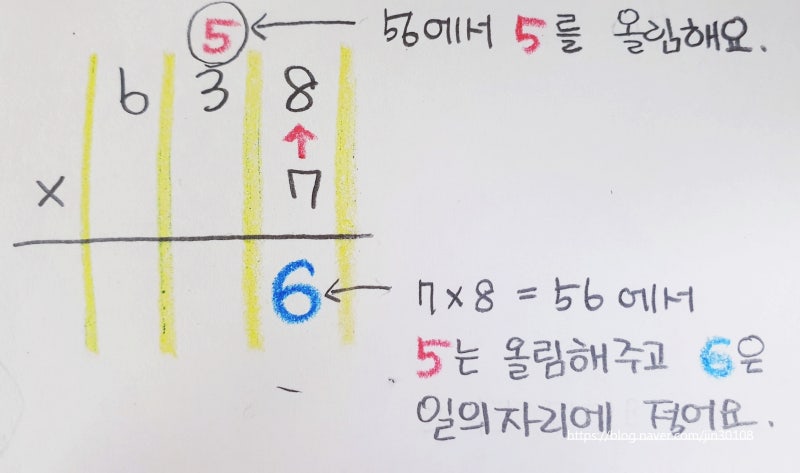 5 ← 56에서 5를 올림해요.
6 3 8
↑
× 7
6 ← 7×8 = 56 에서
5는 올림해주고 6은
일의자리에 적어요.
https://blog.naver.com/jin30108